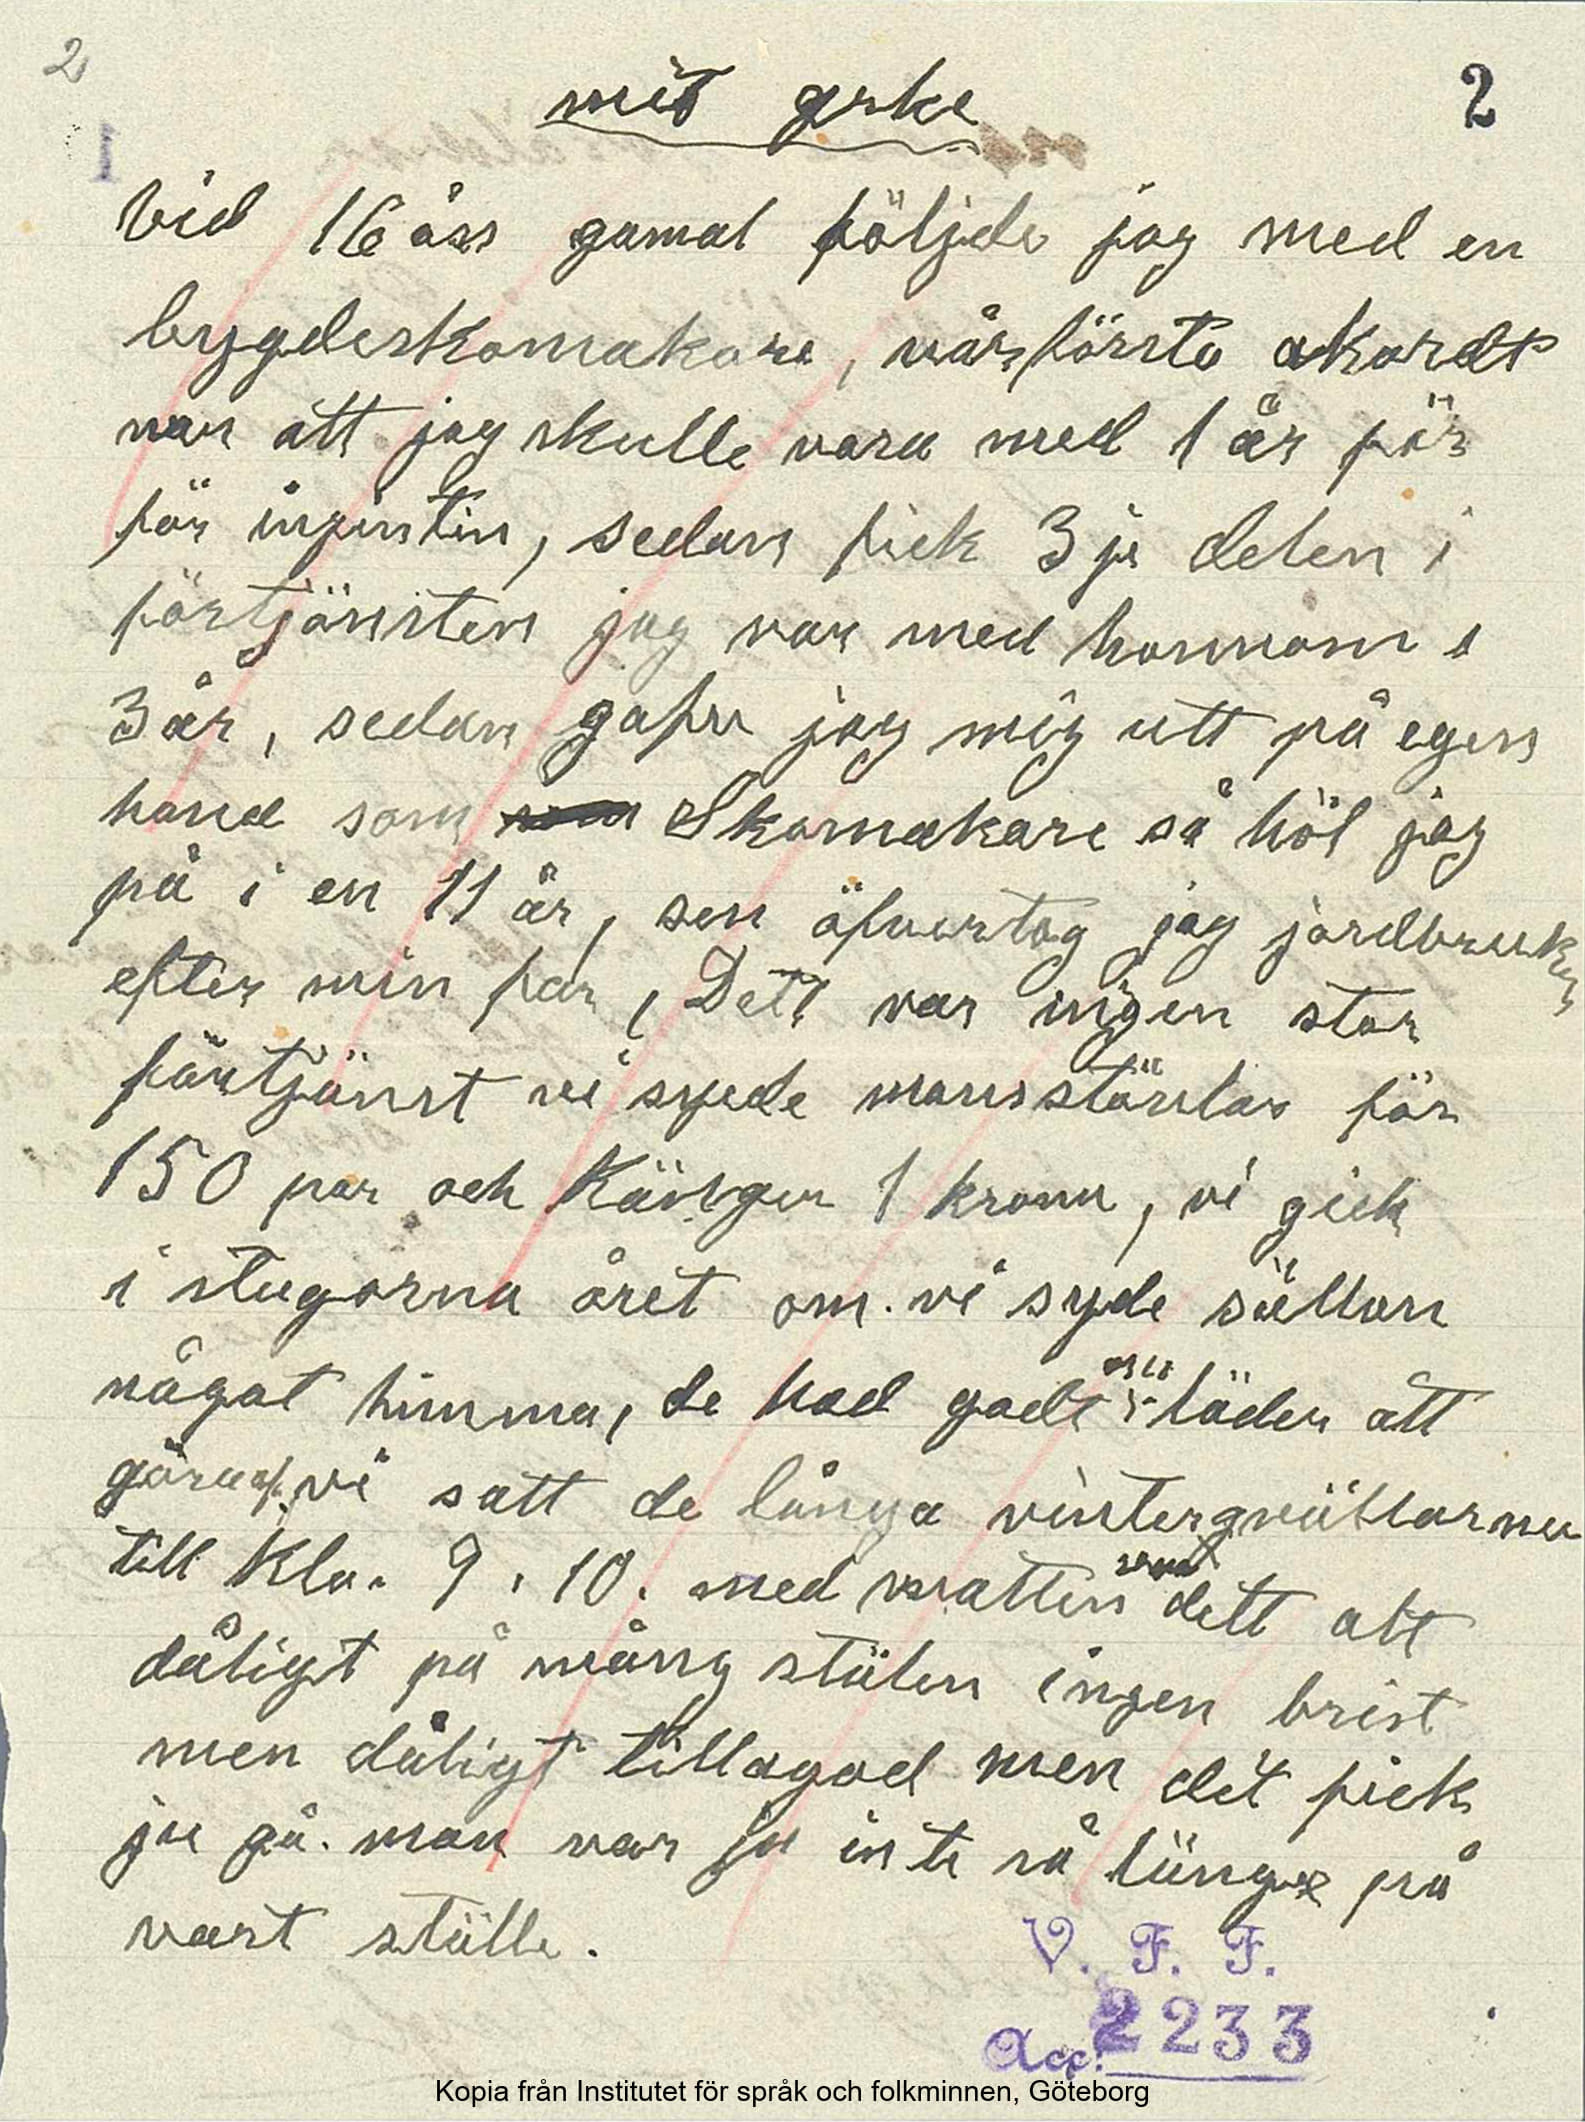 2
mit yrke
2
1
Vid 16 års gamal följde jag med en
bygdeskomakare, vår första akordt
var att jag skulle vara med 1 år för
för ingintin, sedan fick 3je delen i
förtjänsten jag var med honnom i
3 år, sedan gafv jag mig utt på egen
hand som Skomakare så höl jag
på i en 11 år, sen öfvertog jag jordbruket
efter min far, Dett var ingen stor
förtjänst vi syede mansstövlar för
150 par och Känger 1 krona, vi gick
i stugorna året om. vi syde sällan
något himma, de had godt läder att
göra af. vi satt de långa vintergvällarna
till Klo. 9, 10. med matten dett att
dåligt på mång stälen ingen brist
men dåligt tillagad men det fick
ju gå. man var ju inte så länge på
vart ställe.
V. F. F.
Acc: 2233
Kopia från Institutet för språk och folkminnen, Göteborg